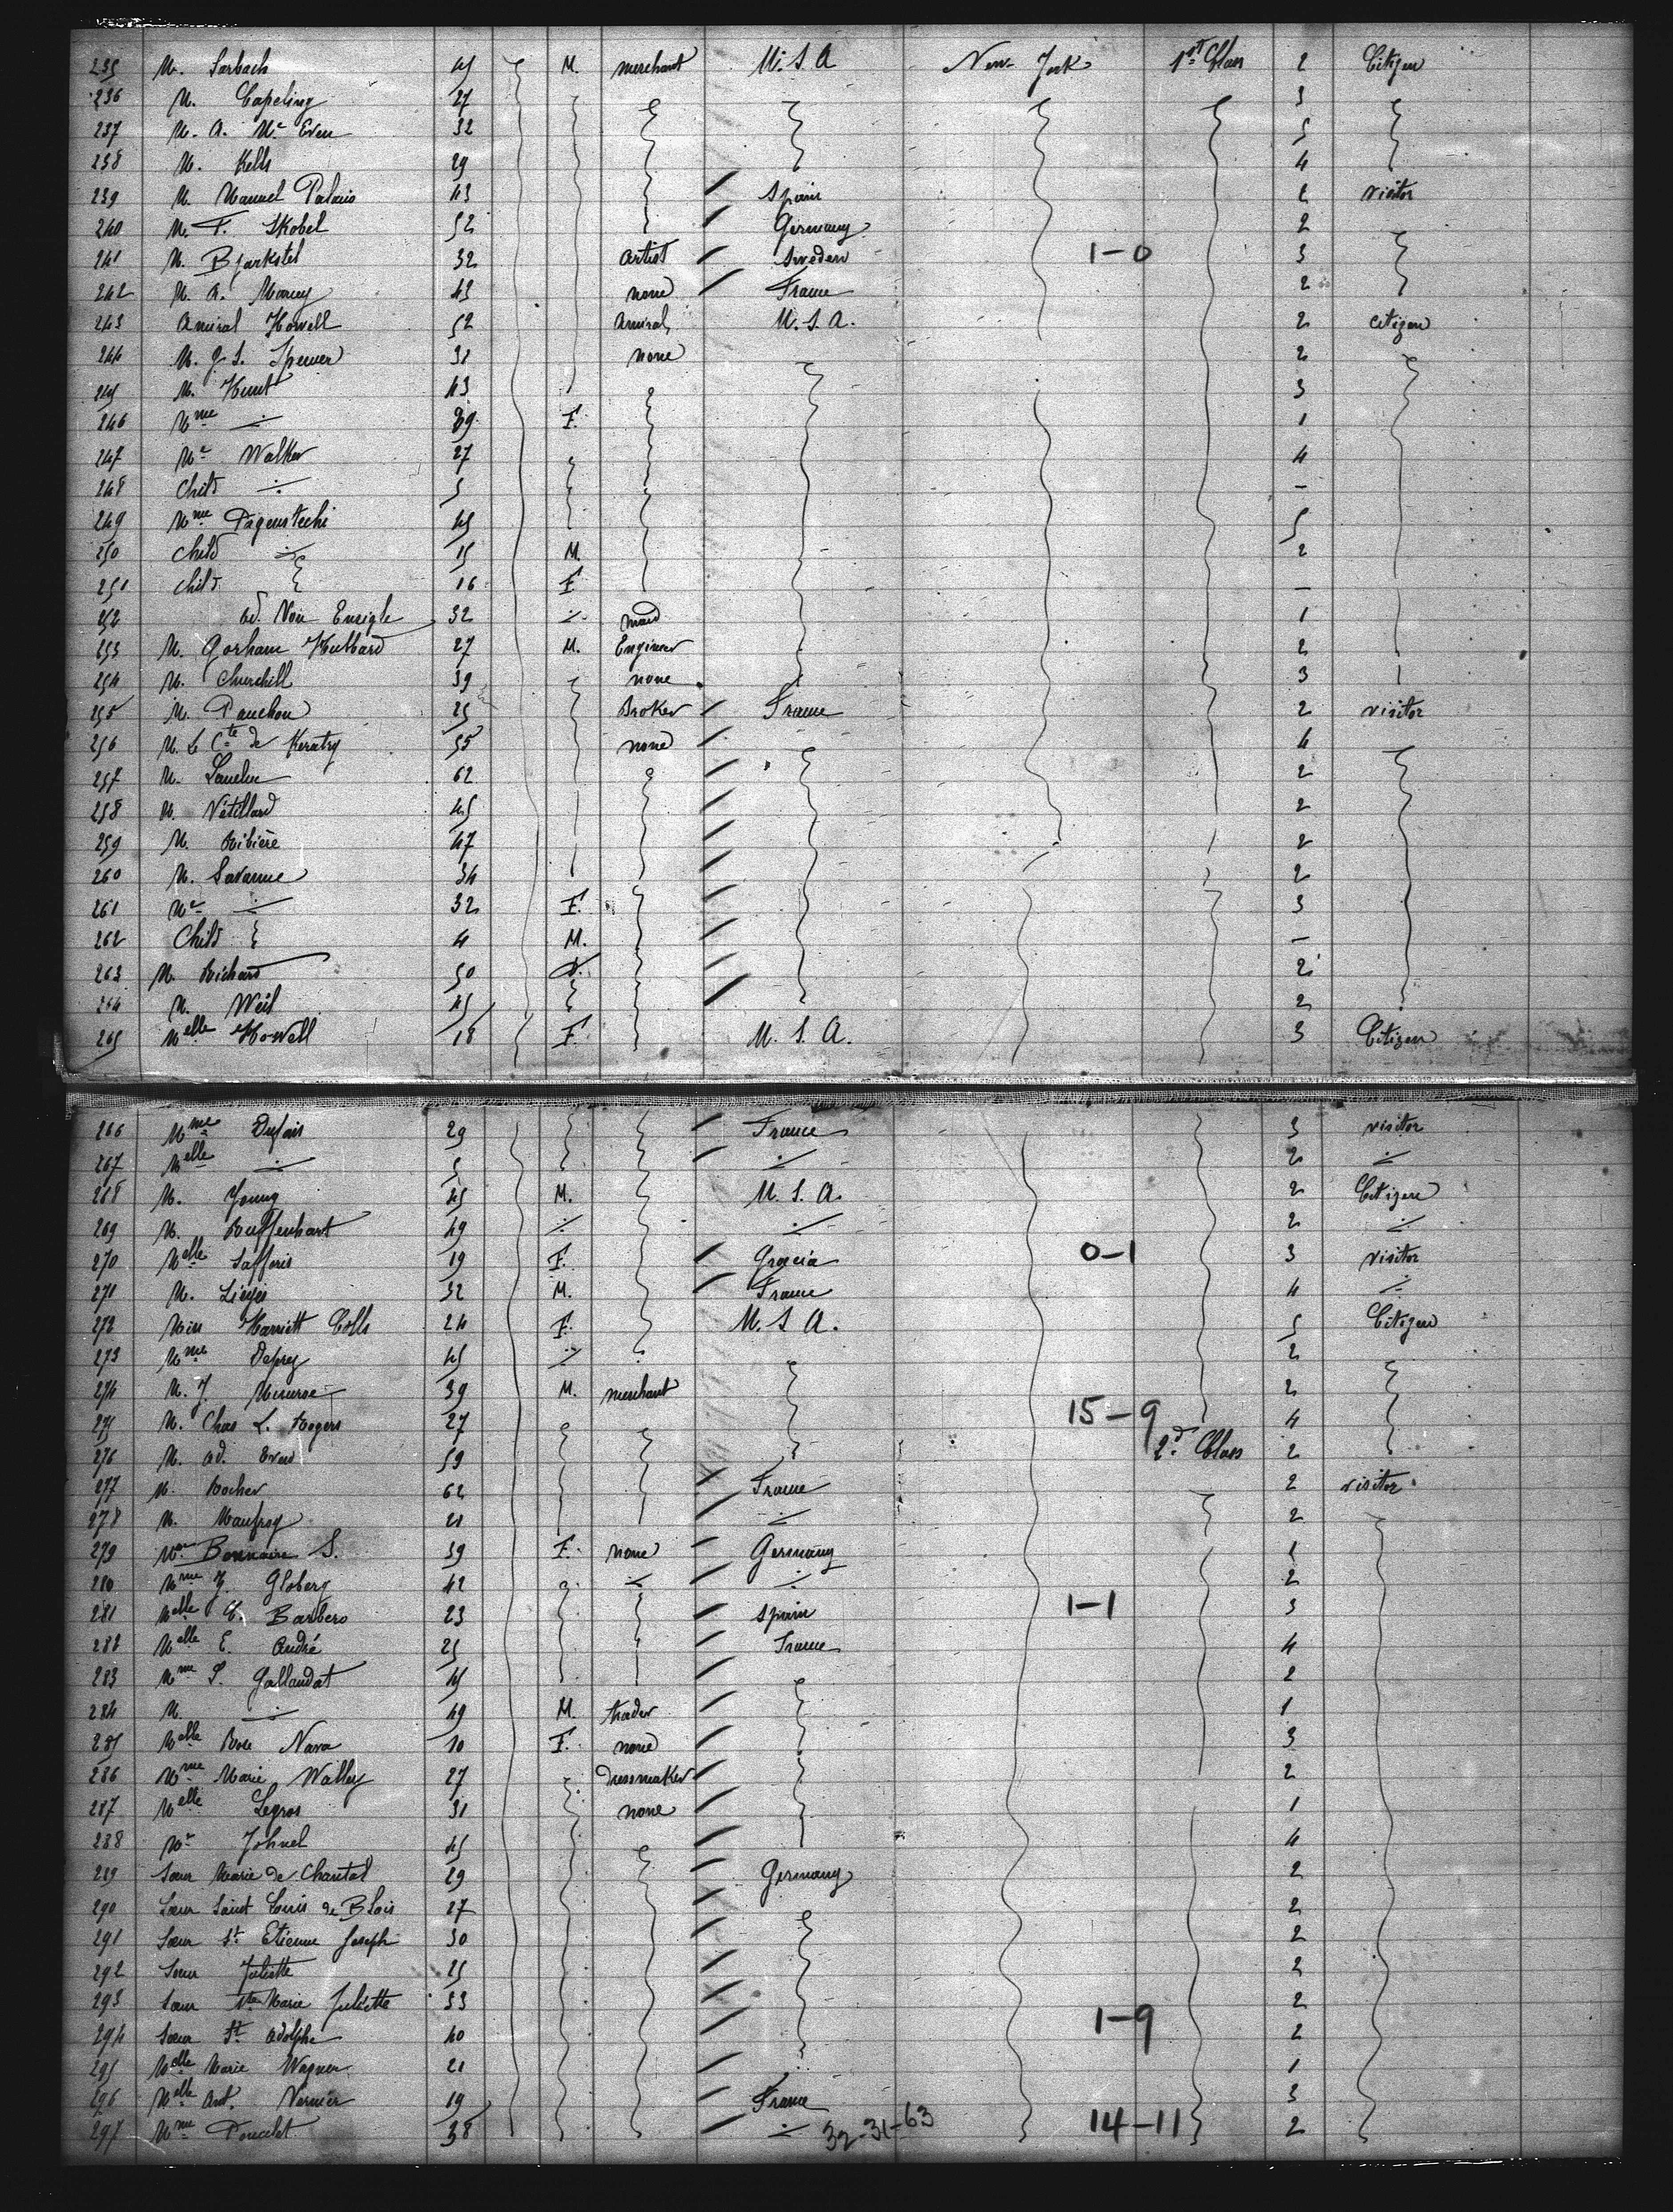 235 M. Sarbach 45 M. merchant U.S.A New-York 1st Class 2 Citizen
236 M. Capeling 27 3
237 M. A. Mc Even 32 5
238 M. Kells 29 4
239 M. Manuel Palacio 43 Spain 2 visitor
240 M. F. Skobel 52 Germany 2
241 M. Bjarkstel 32 artist Sweden 1-0 3
242 M. A. Marcy 43 none France 2
243 Amiral Howell 52 Amiral U.S.A. 2 citizen
244 M. J. S. Spencer 31 none 2
245 M. Hunt 43 3
246 Mme ÷ 39 F. 1
247 Me Walker 27 4
248 Child ÷ 5 –
249 Mme Pagenstechi 45 5
250 Child ÷ 15 M. 2
251 Child 16 F. –
252 ad. Non Ensigle 32 ÷ maid 1
253 M. Gorham Hubbard 27 M. Engineer 2
254 M. Churchill 39 none 3
255 M. Pauchou 25 Broker France 2 visitor
256 M. Le Cte de Keratry 55 none 4
257 M. 62 2
258 M. Vétillard 45 2
259 M. Ribière 47 2
260 M. Savanne 34 2
261 Me ÷ 32 F. 3
262 Child 4 M. –
263 M. Richard 50 2
264 M. Weil 45 2
265 Melle Howell 18 F. U.S.A. 3 Citizen
266 Mme Dufais 29 France 3 visitor
267 Melle ÷ 5 ÷ 2 ÷
268 M. Young 45 M. U.S.A. 2 Citizen
269 M. Ruffenhart 49 ÷ ÷ 2 ÷
270 Melle Safferis 19 F. Grecia 0-1 3 visitor
271 M. 32 M. France 4 ÷
272 Miss Harriett Colls 24 F. U.S.A. 5 Citizen
273 Mme Deprez 45 ÷ 2
274 M. J. 39 M. merchant 2
275 M. Chas L. Rogers 27 15-9 4
276 M. ad. Evrad 59 2d Class 2
277 M. Rocher 62 France 2 visitor
278 M. Maufroy 21 ÷ 2
279 Me Bonnaire S. 39 F. none Germany 1
280 Mme J. Globerg 42 ÷ ÷ 2
281 Melle C. Barbero 23 Spain 1-1 3
282 Melle E. André 25 France 4
283 Mme P. Gallaudat 45 2
284 M. ÷ 49 M. trader 1
285 Melle Rose Nara 10 F. none 3
286 Mme Marie Walley 27 Dressmaker 2
287 Melle Legros 31 none 1
288 Me Johnel 45 4
289 Sœur Marie de Chantal 29 Germany 2
290 Sœur Saint Louis de Blois 27 2
291 Sœur St Etienne Joseph 30 2
292 Sœur Juliette 25 2
293 Sœur Ste Marie Juliette 33 2
294 Sœur St Adolphe 40 1-9 2
295 Melle Marie Wagner 21 1
296 Melle Ant. Vernier 19 France 3
297 Mme Poucelet 38 ÷ 32-31-63 14-11 2